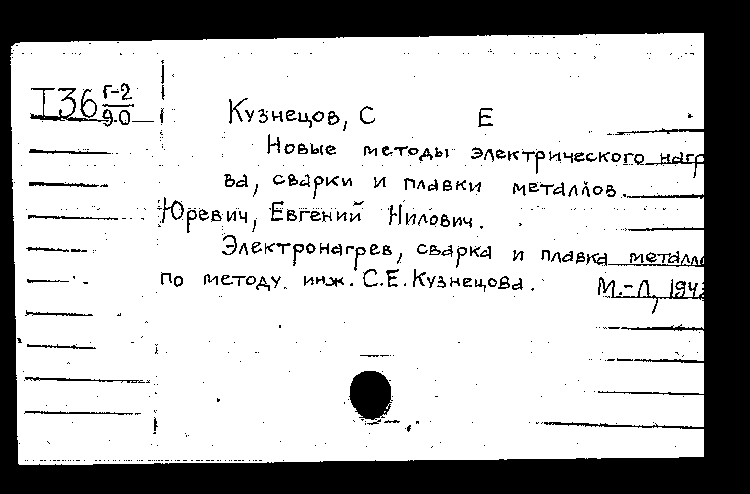 I36 г-2
9.0
Кузнецов, С Е
Новые методы электрического нагр
ва, сварки и плавки металлов.
Юревич, Евгений Нилович.
Электронагрев, сварка и плавка металл
по методу инж. С.Е.Кузнецова. М.-Л, 194